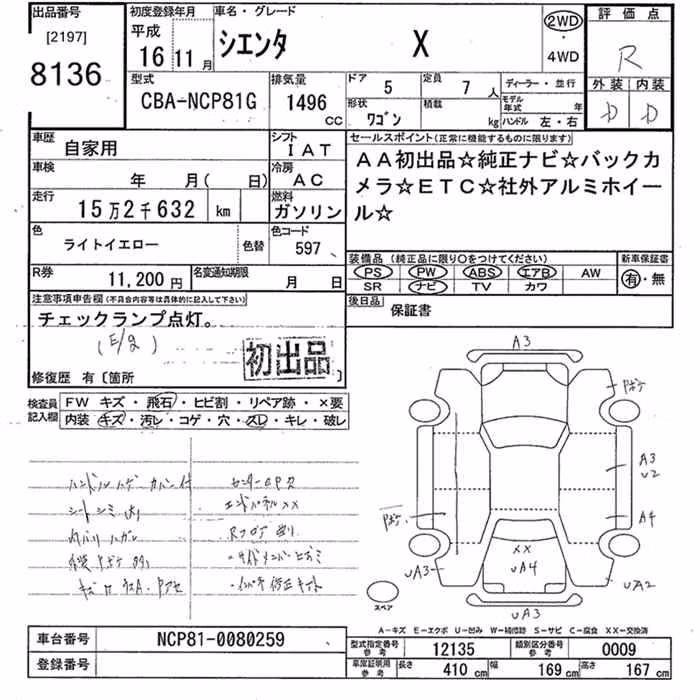 出品番号
[2197]
8136
初度登録年月
平成
16 11月
車名・グレード
シエンタ X
2WD
・
4WD
評価点
R
外装 内装
D D
型式
CBA-NCP81G
排気量
1496
CC
ドア 5
定員 7人
形状 ワゴン
積載 kg
ディーラー・並行
モデル年式 年
ハンドル 左・右
車歴 自家用
シフト IAT
車検 年 月( 日)
冷房 AC
走行 15万2千632 km
燃料 ガソリン
色 ライトイエロー 色替
色コード 597
R券 11,200円
名変通知期限 月 日
セールスポイント(正常に機能するものに限ります)
AA初出品☆純正ナビ☆バックカ
メラ☆ETC☆社外アルミホイー
ル☆
装備品(純正品に限り○をつけてください)
PS PW ABS エアB AW
SR ナビ TV カワ
新車保証書
有・無
後日品 保証書
注意事項申告欄(不具合内容等は具体的に記入して下さい)
チェックランプ点灯。
(E/g)
初出品
修復歴 有〔箇所
検査員記入欄
FW キズ・飛石・ヒビ割・リペア跡・×要
内装 キズ・汚レ・コゲ・穴・スレ・キレ・破レ
ハンドルハゲ カバー付
シートシミ
エンドパネルXX
A3
A3
U2
A4
XX
UA4
UA3
UA2
UA3
スペア
A-キズ E-エクボ U-凹み W-補修跡 S-サビ C-腐食 XX-交換済
車台番号 NCP81-0080259
登録番号
型式指定番号参考 12135
類別区分番号参考 0009
車庫証明用参考 長さ 410 cm 幅 169 cm 高さ 167 cm